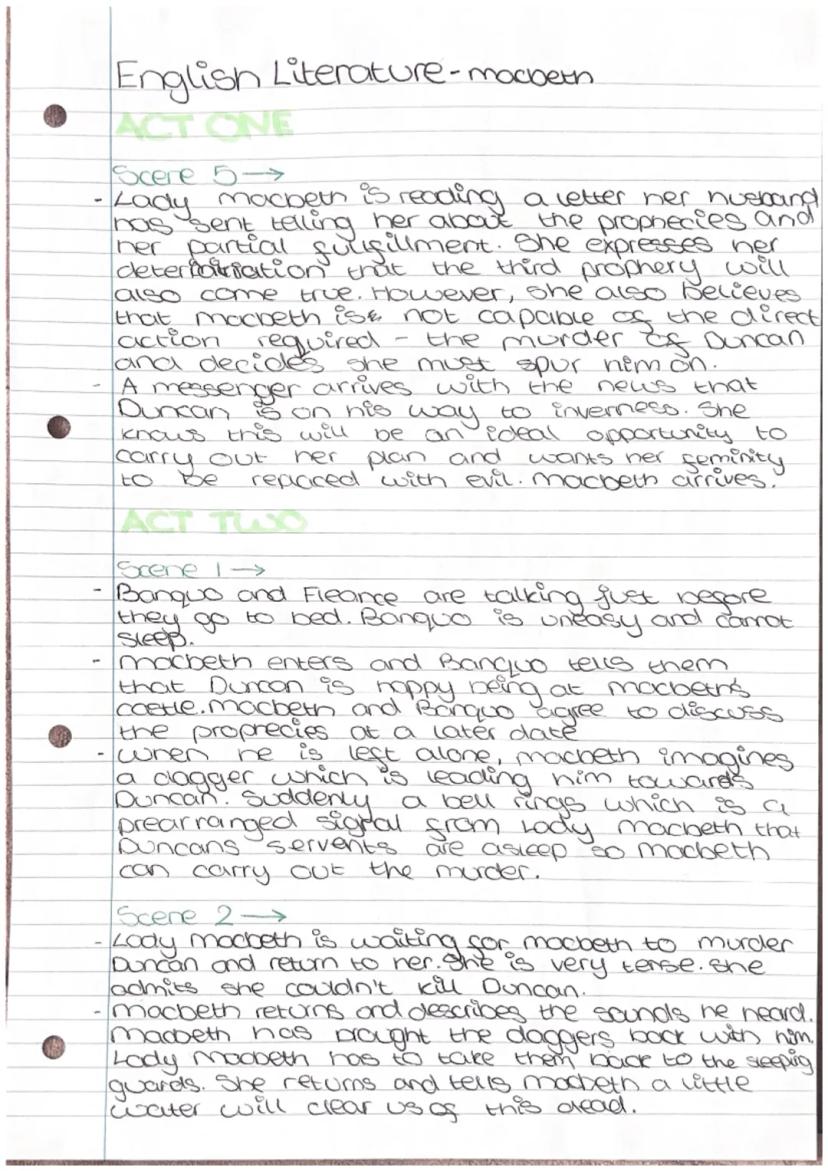 English Literature - macbeth
ACT ONE
Scene 5 →
- Lady macbeth is reading a letter her husband
has sent telling her about the prophecies and
her partial fulfillment. She expresses her
determination that the third prophery will
also come true. However, she also believes
that macbeth is not capable of the direct
action required - the murder of Duncan
and decides she must spur him on.
- A messenger arrives with the news that
Duncan is on his way to inverness. She
knows this will be an ideal opportunity to
carry out her plan and wants her feminity
to be repaced with evil. Macbeth arrives.
ACT TWO
Scene 1 →
- Banquo and Fleance are talking just before
they go to bed. Banquo is uneasy and cannot
sleep.
- macbeth enters and Banquo tells them
that Duncan is happy being at macbeth's
castle. macbeth and Banquo agree to discuss
the prophecies at a later date
- when he is left alone, macbeth imagines
a dagger which is leading him towards
Duncan. Suddenly a bell rings which is a
prearranged signal from Lady macbeth that
Duncans servents are asleep so macbeth
can carry out the murder.
Scene 2 →
- Lady macbeth is waiting for macbeth to murder
Duncan and return to her. She is very tense. she
admits she couldn't kill Duncan.
- macbeth returns and describes the sounds he heard.
Macbeth has brought the daggers back with him.
Lady Macbeth has to take them back to the sleeping
guards. She returns and tells macbeth a little
water will clear us of this dead.